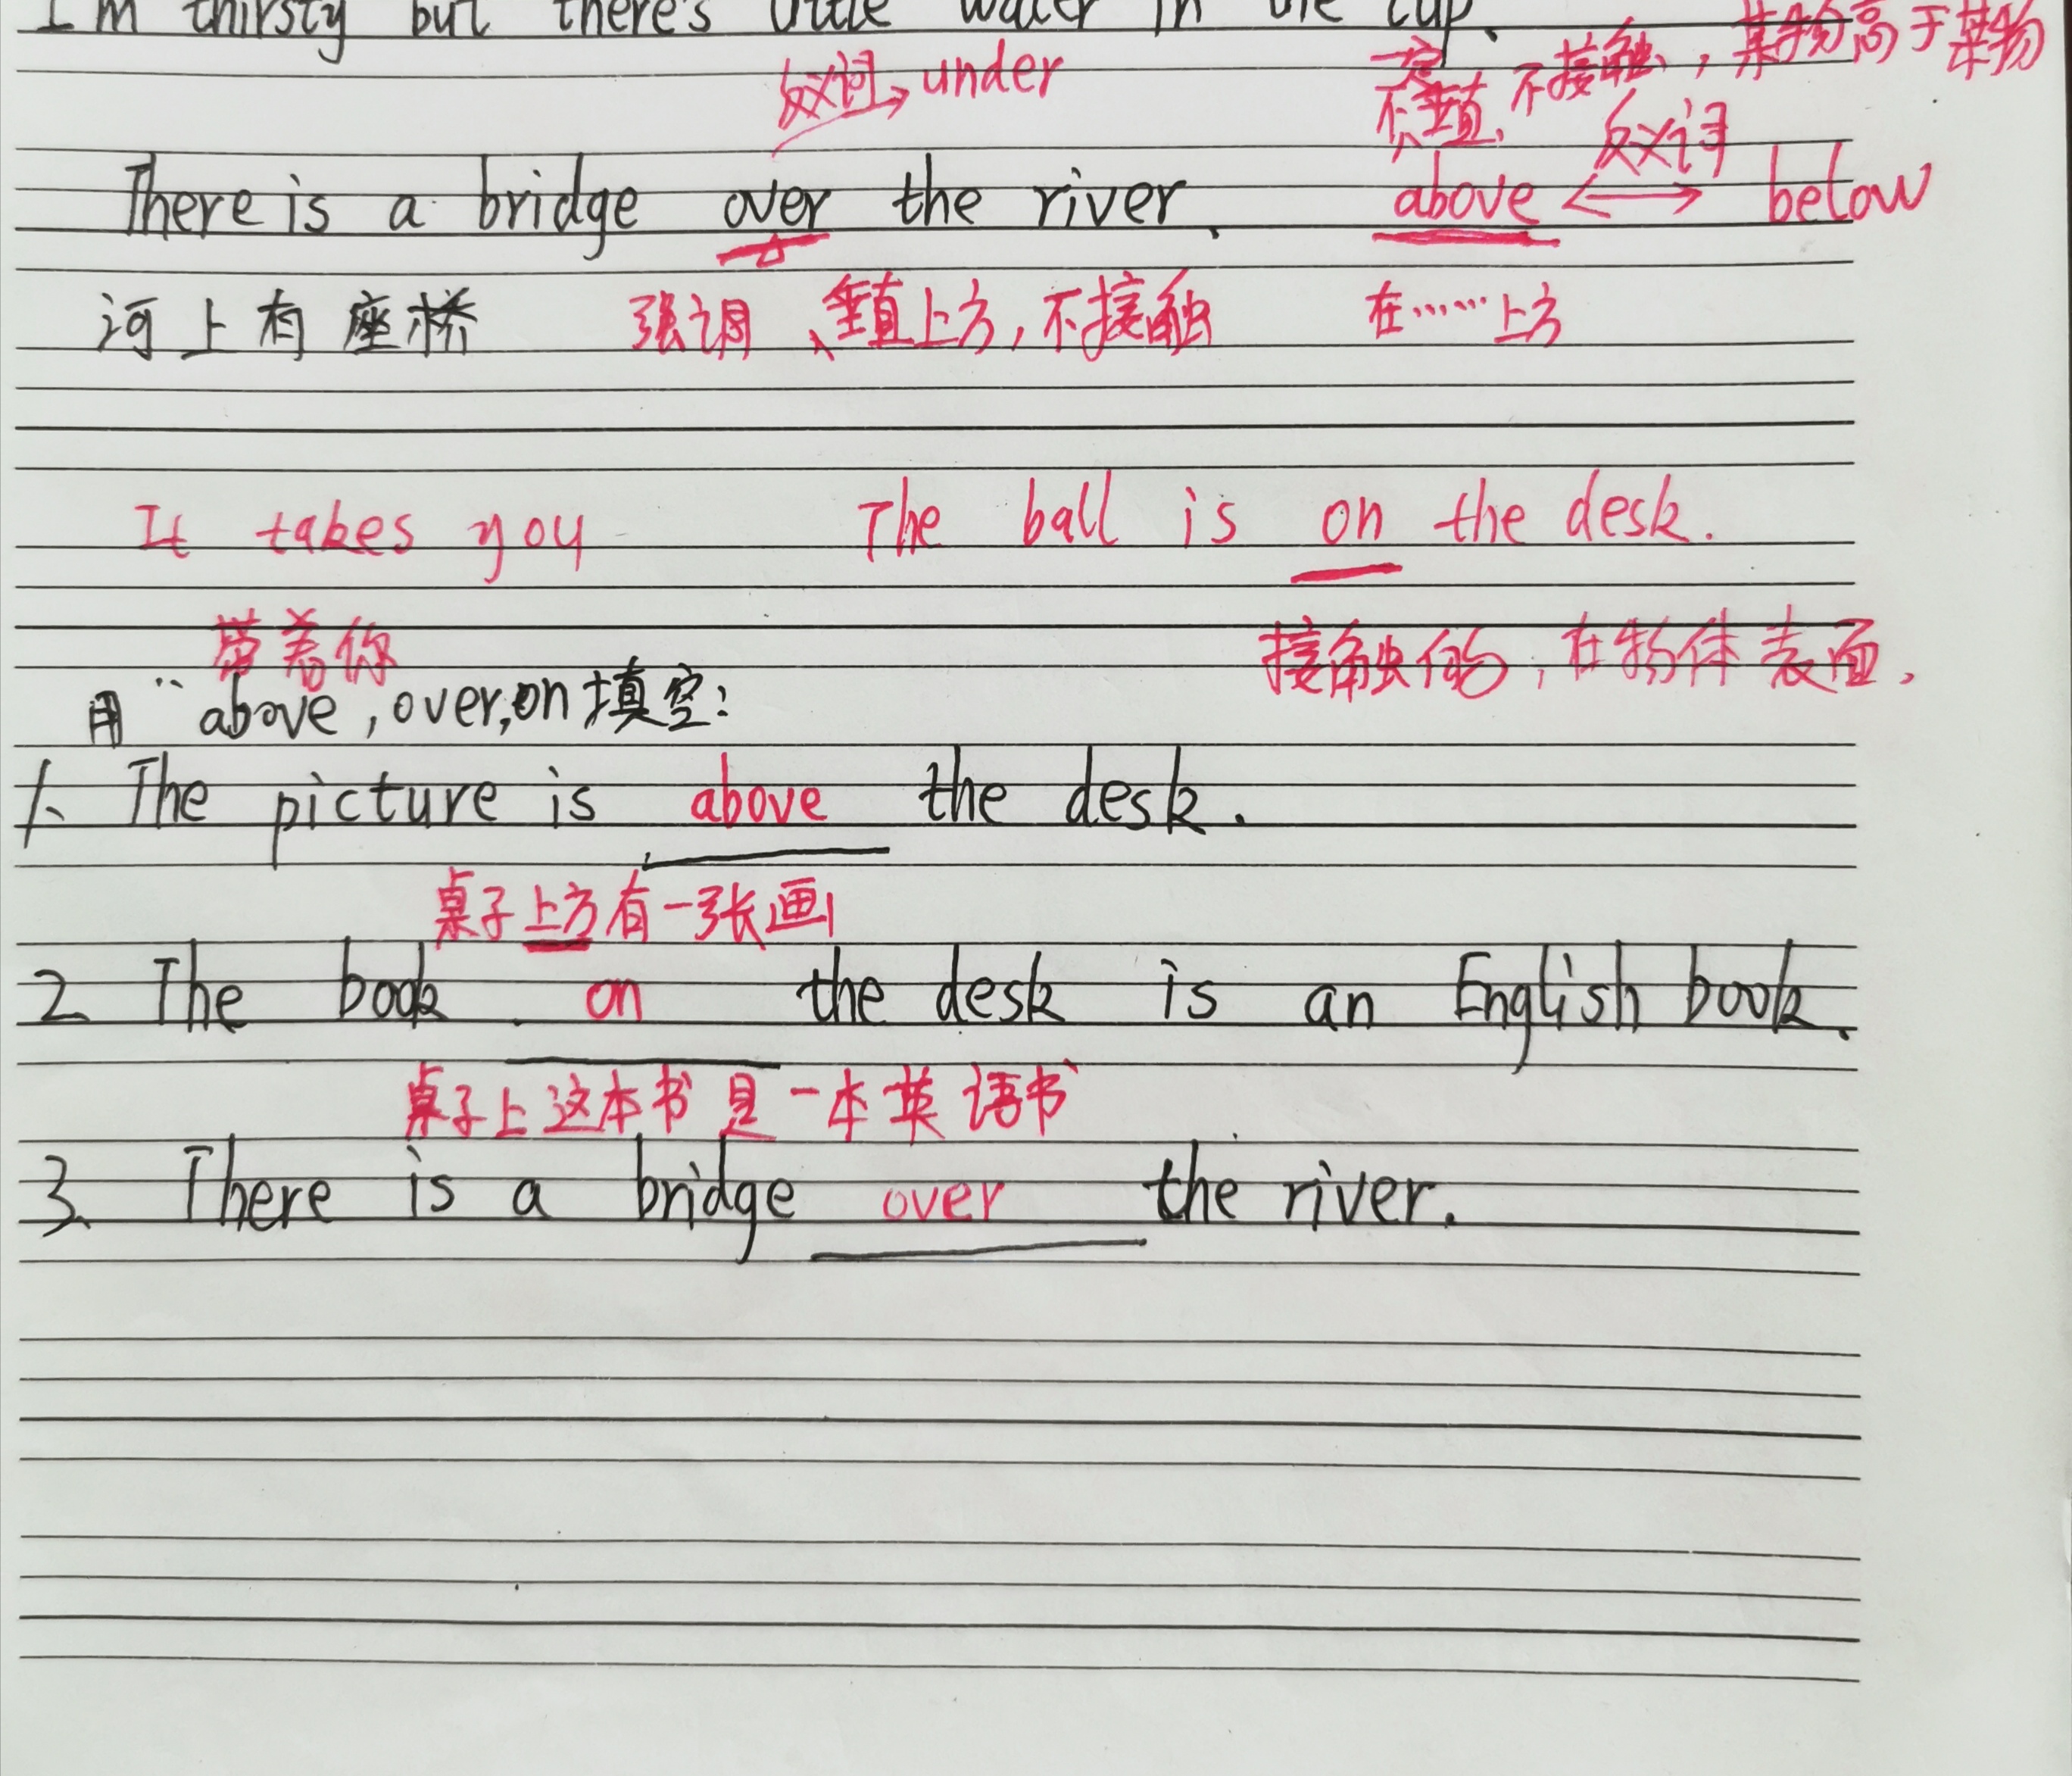 I'm thirsty but there's little water in the cup.
反义词→ under
不一定垂直、不接触，某物高于某物
There is a bridge over the river. above ←反义词→ below
河上有座桥 强调、垂直上方，不接触 在……上方
It takes you The ball is on the desk.
带着你 接触的，在物体表面.
用“above,over,on填空:
1. The picture is above the desk.
桌子上方有一张画
2 The book on the desk is an English book.
桌子上这本书是一本英语书
3. There is a bridge over the river.